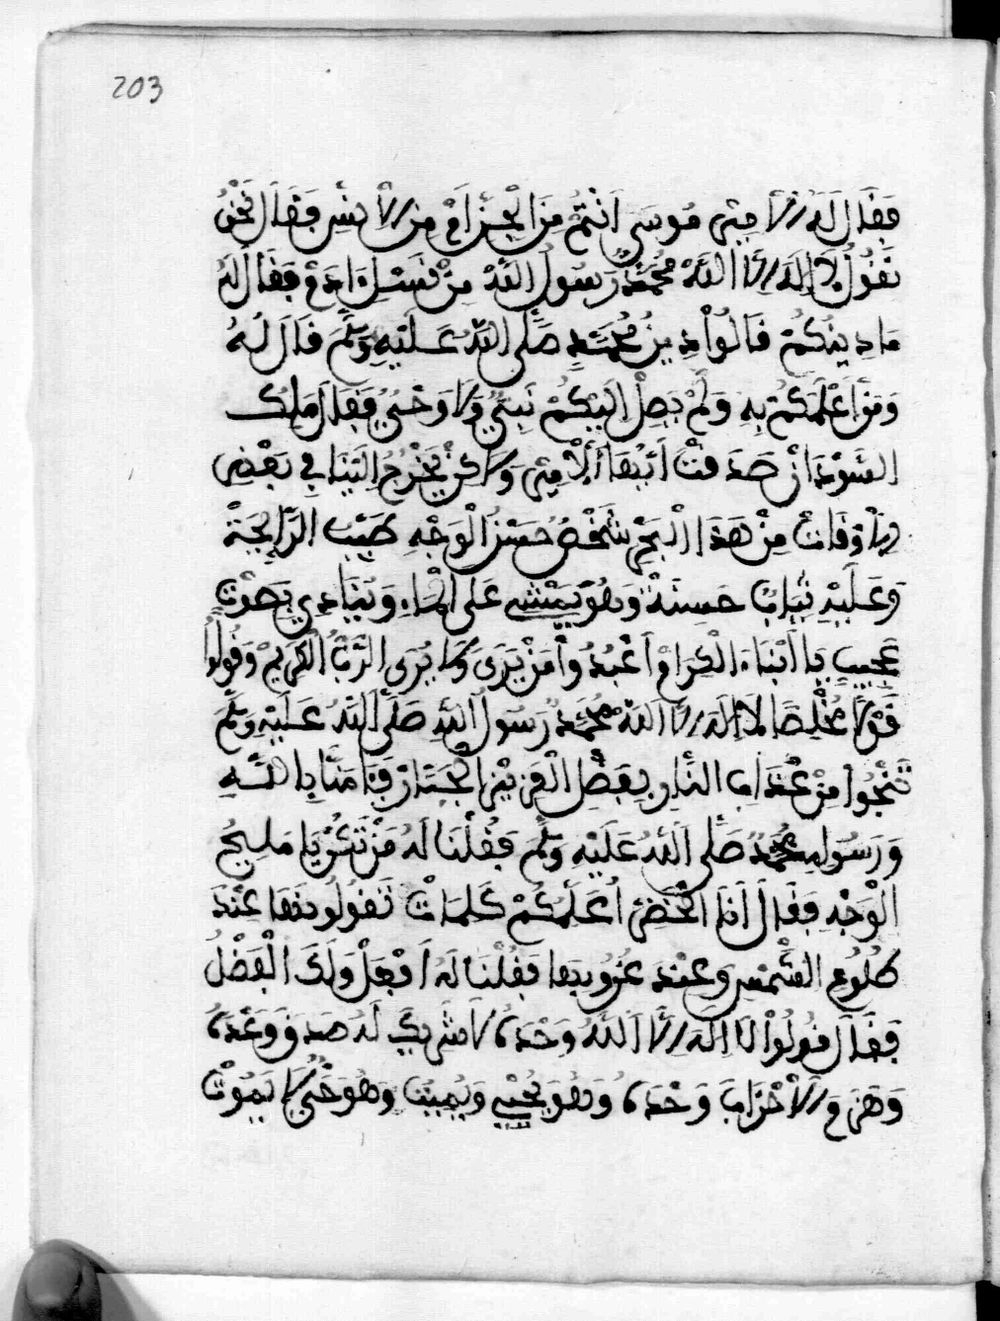 203
فَقَالَ لَهُ الأمير موسى انتم من الجن أم من الإنس فقال نحن
نقول لا إله إلا الله محمد رسول الله من نسل ادم فقال له
ما دينكم قالوا دين محمد صلى الله عليه وسلم قال له
ومن أعلمكم به ولم يصل اليكم نبي ولا وحي فقال ملك
السودان صدقت ايها الأمير ولاكن يخرج الينا في بعض
الأوقات من هذا البحر شخص حسن الوجه طيب الرايحة
وعليه ثياب حسنة وهو يمشي على الماء وينادي بصوت
عجيب يا ابناء الكرام اعبدوا من يرى ولا يرى الرب الكريم وقولوا
قولا مخلصا لا إله إلا الله محمد رسول الله صلى الله عليه وسلم
تنجوا من عذاب النار بفضل العزيز الجبار فآمنا بالله
ورسوله محمد صلى الله عليه وسلم فقلنا له من تكن يا مليح
الوجه فقال انا الخضر أعلمكم كلمات تقولونها عند
طلوع الشمس وعند غروبها فقلنا له افعل ولك الفضل
فقال قولوا لا إله إلا الله وحده لا شريك له صدق وعده
وهزم الأحزاب وحده وهو يحيي ويميت وهو حي لا يموت